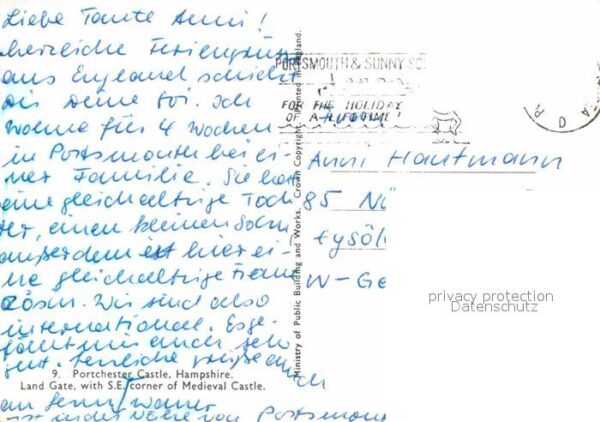 Liebe Tante Anni!
herzliche Feriengrüße
aus England schickt
Dir Deine Evi. Ich
wohne für 4 Wochen
in Portsmouth bei ei-
ner Familie. Sie hat
eine gleichaltrige Toch
ter, einen kleinen Sohn,
außerdem ist hier ei-
ne gleichaltrige Franz
ösin. Wir sind also
international. Es ge-
fällt mir auch sehr
gut. Herzliche Grüße auch
an
ist in der Nähe von Portsmouth
9. Portchester Castle, Hampshire.
Land Gate, with S.E. corner of Medieval Castle.
Ministry of Public Building and Works. Crown Copyright. Printed in England.
PORTSMOUTH & SUNNY SO
FOR THE HOLIDAY
OF A LIFETIME
Anni Hautmann
85 NÜ
W-Ge
privacy protection
Datenschutz